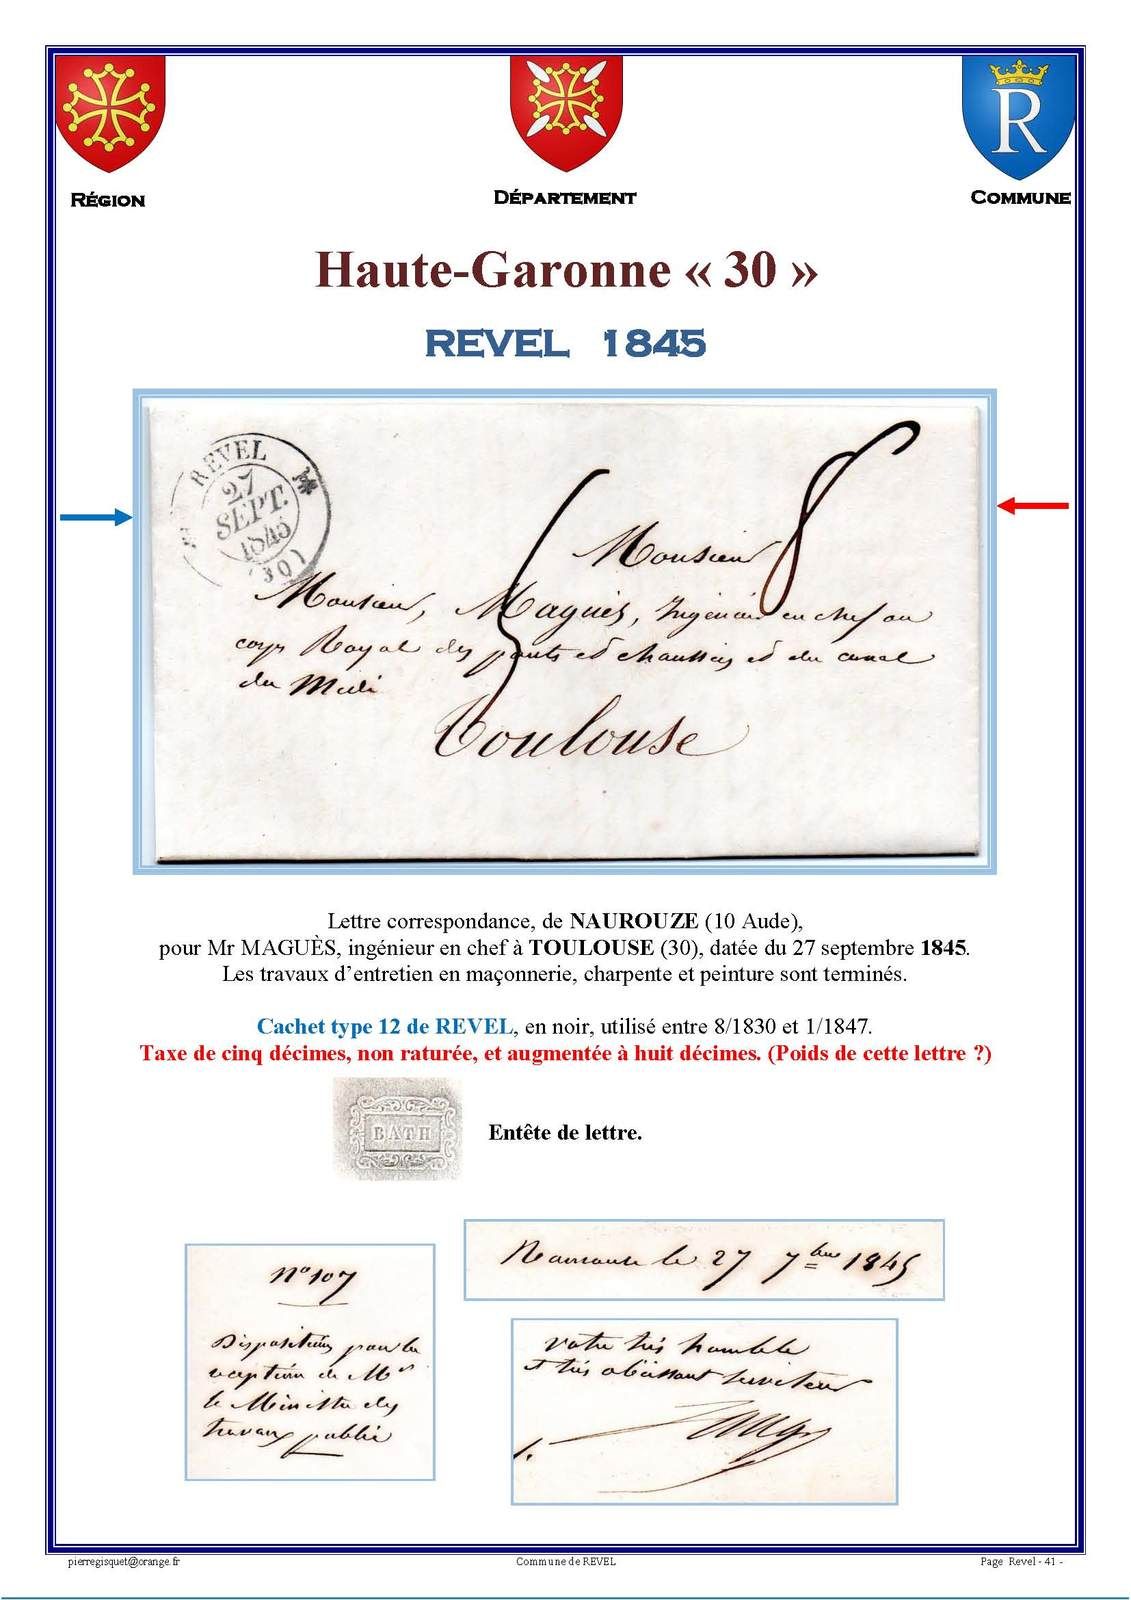 RÉGION
DÉPARTEMENT
COMMUNE
R
Haute-Garonne « 30 »
REVEL 1845
REVEL
27
SEPT.
1845
(30)
8
5
Monsieur
Monsieur, Maguès, Ingénieur en chef au
corps Royal des ponts et chaussées et du canal
du Midi
Toulouse
Lettre correspondance, de NAUROUZE (10 Aude),
pour Mr MAGUÈS, ingénieur en chef à TOULOUSE (30), datée du 27 septembre 1845.
Les travaux d’entretien en maçonnerie, charpente et peinture sont terminés.
Cachet type 12 de REVEL, en noir, utilisé entre 8/1830 et 1/1847.
Taxe de cinq décimes, non raturée, et augmentée à huit décimes. (Poids de cette lettre ?)
BATH
Entête de lettre.
Naurouze le 27 7bre 1845
N° 107
Dispositions pour la
réception de Mr
le Ministre des
travaux publics
votre très humble
et très obéissant serviteur
pierregisquet@orange.fr
Commune de REVEL
Page Revel - 41 -